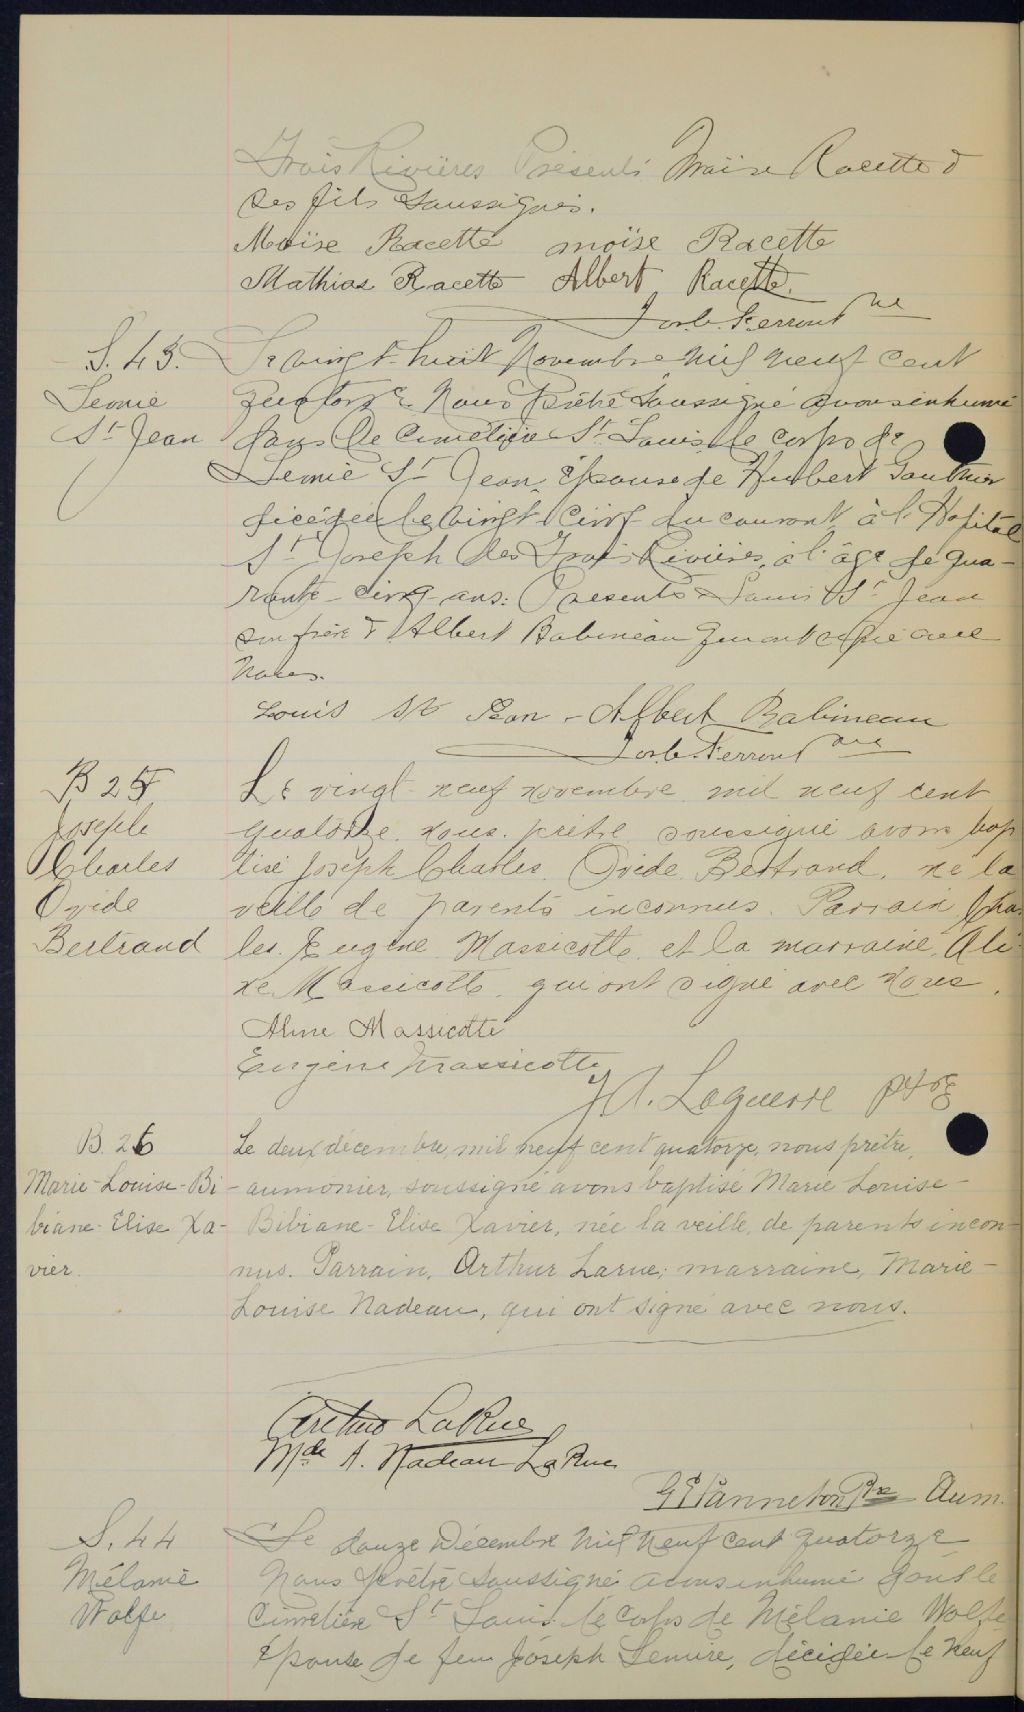 Trois Rivières Présents Moïse Racette &
ses fils soussignés.
Moïse Racette moïse Racette
Mathias Racette Albert Racette.
Jos. C. Ferront ptre
S. 43. Le vingt-huit Novembre Mil neuf cent
Leonie quatorze Nous Prêtre soussigné avons inhumé
St Jean dans le cimetière St. Louis le corps de
Leonie St Jean, épouse de Hubert Gauthier
décédée le vingt-cinq du courant à l'Hopital
St Joseph des Trois-Rivières, à l'âge de qua-
rante-cinq ans. Présents Louis St Jean
son frère & Albert Babineau qui ont signé avec
Nous.
Louis St Jean - Albert Babineau
Jos. C. Ferront ptre
B 25 Le vingt-neuf novembre mil neuf cent
Joseph quatorze nous, prêtre soussigné avons bap
Charles tisé Joseph Charles Ovide Bertrand, né la
Ovide veille de parents inconnus. Parrain Char
Bertrand les Eugène Massicotte et la marraine Ali
ne Massicotte qui ont signé avec nous.
Aline Massicotte
Eugène Massicotte
J. A. Laguerre ptre
B. 26 Le deux décembre, mil neuf cent quatorze, nous prêtre,
Marie-Louise-Bi- aumonier, soussigné avons baptisé Marie Louise-
biane-Elise Xa- Bibiane-Elise Xavier, née la veille, de parents incon-
vier. nus. Parrain, Arthur Larue; marraine, Marie-
Louise Nadeau, qui ont signé avec nous.
Arthur LaRue
Mde A. Nadeau LaRue
G E Panneton Ptre Aum.
S. 44 Le douze Décembre Mil Neuf cent quatorze
Mélanie Nous prêtre soussigné avons inhumé dans le
Wolfe Cimetière St Louis le corps de Mélanie Wolfe
épouse de feu Joseph Lemire, décédée le neuf